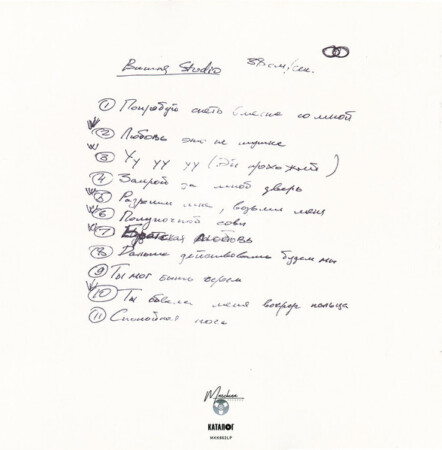 Вишня Studio 38 см/сек.
① Попробуй спеть вместе со мной
② Любовь это не шутка
③ Уу уу уу (Эй прохожий)
④ Закрой за мной дверь
⑤ Разреши мне, меня
⑥ Полуночной совы
⑦ Братская любовь
⑧ Дальше действовать будем мы
⑨ Ты мог быть
⑩ Ты бовела меня вокруг пальца
⑪ Спокойная ночь
КАТАЛОГ
MKK862LP